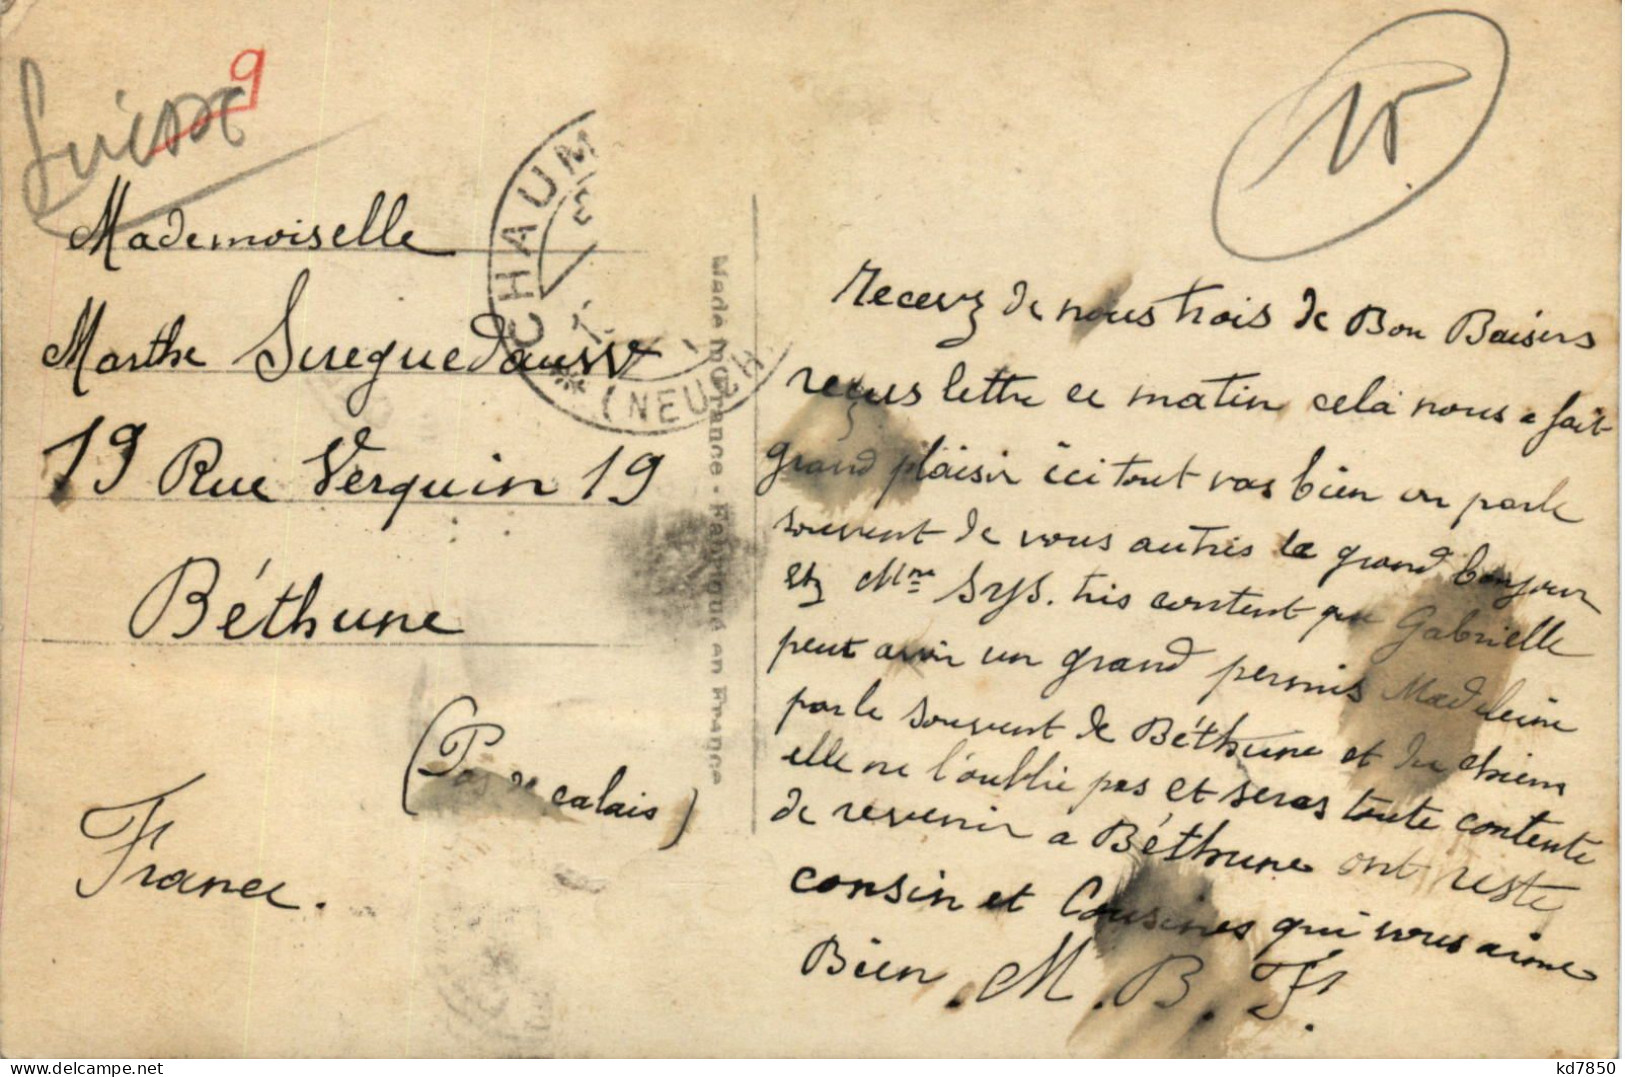 Suisse
9
Mademoiselle
Marthe
19 Rue Verquin 19
Béthune
(Pas de calais)
France.
CHAUM
* (NEUCH
Made in France - Fabriqué en France
15
Recevez de nous trois de Bon Baisers
reçus lettre ce matin cela nous a fait
grand plaisir ici tout vas bien on parle
souvent de vous autres le grand bonjour
etz Mme Sys. tris content que Gabrielle
peut avoir un grand permis Madeleine
parle souvent de Béthune et du chiens
elle ne l'oublie pas et seras toute contente
de revenir a Béthune ont reste
consin et Cousines qui vous aime
Bien. M. B. F.
kd7850